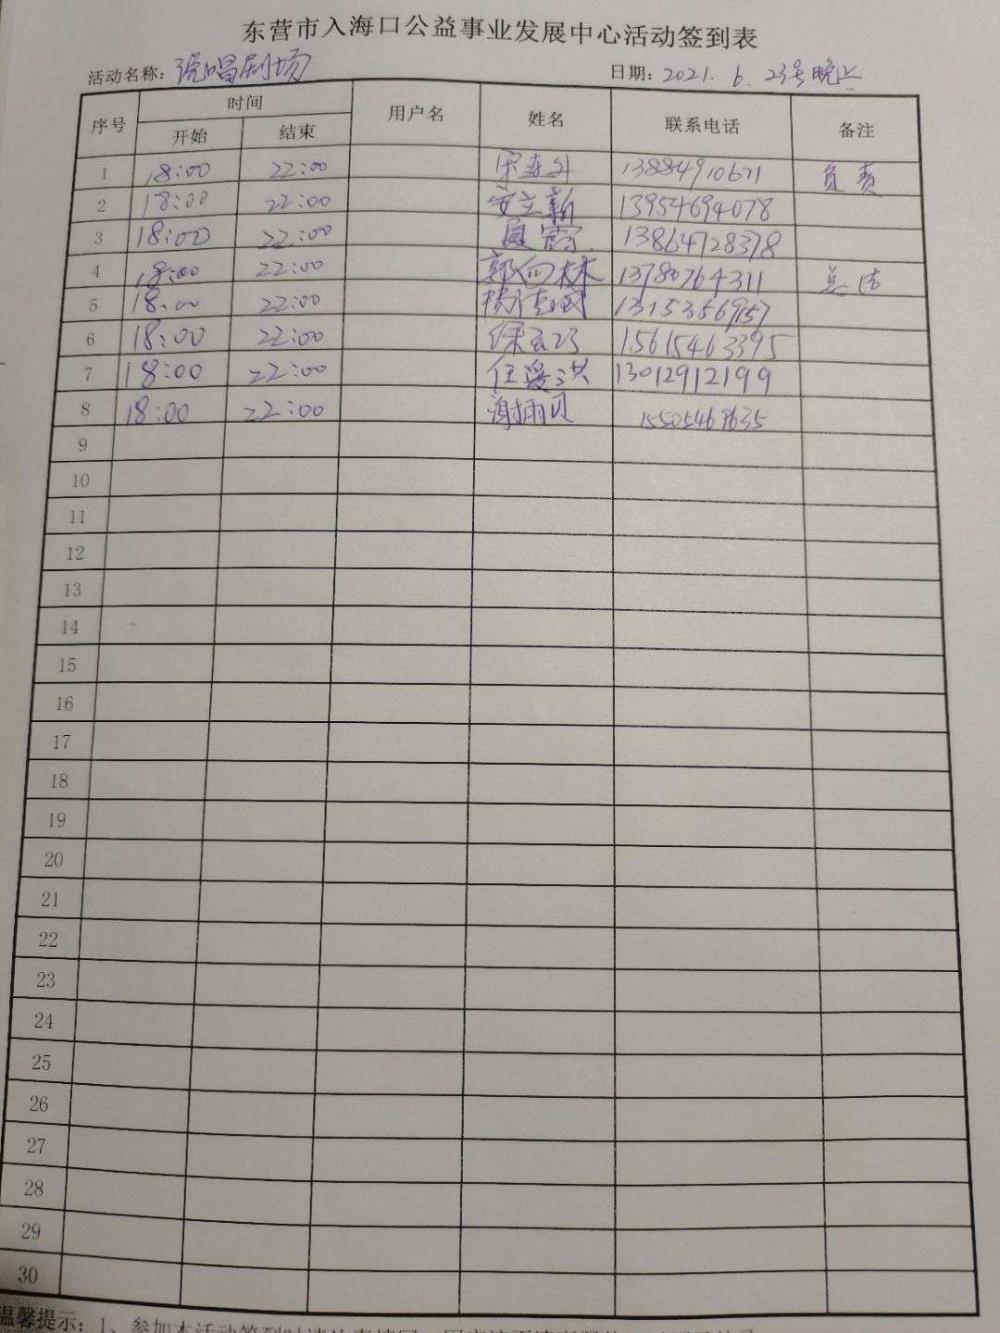 东营市入海口公益事业发展中心活动签到表
活动名称: 说唱剧场 日期: 2021. 6. 23号晚上
序号 时间 用户名 姓名 联系电话 备注
开始 结束
1 18:00 22:00 13884910671 负责
2 18:00 22:00 安立新 13954694078
3 18:00 22:00 夏雷 13864728378
4 18:00 22:00 郭向林 13780764311 总结
5 18:00 22:00 13153569157
6 18:00 22:00 15615463395
7 18:00 22:00 任爱洪 13012912199
8 18:00 22:00 谢树贝 15505468635
9
10
11
12
13
14
15
16
17
18
19
20
21
22
23
24
25
26
27
28
29
30
温馨提示: 1、参加本活动签到时请